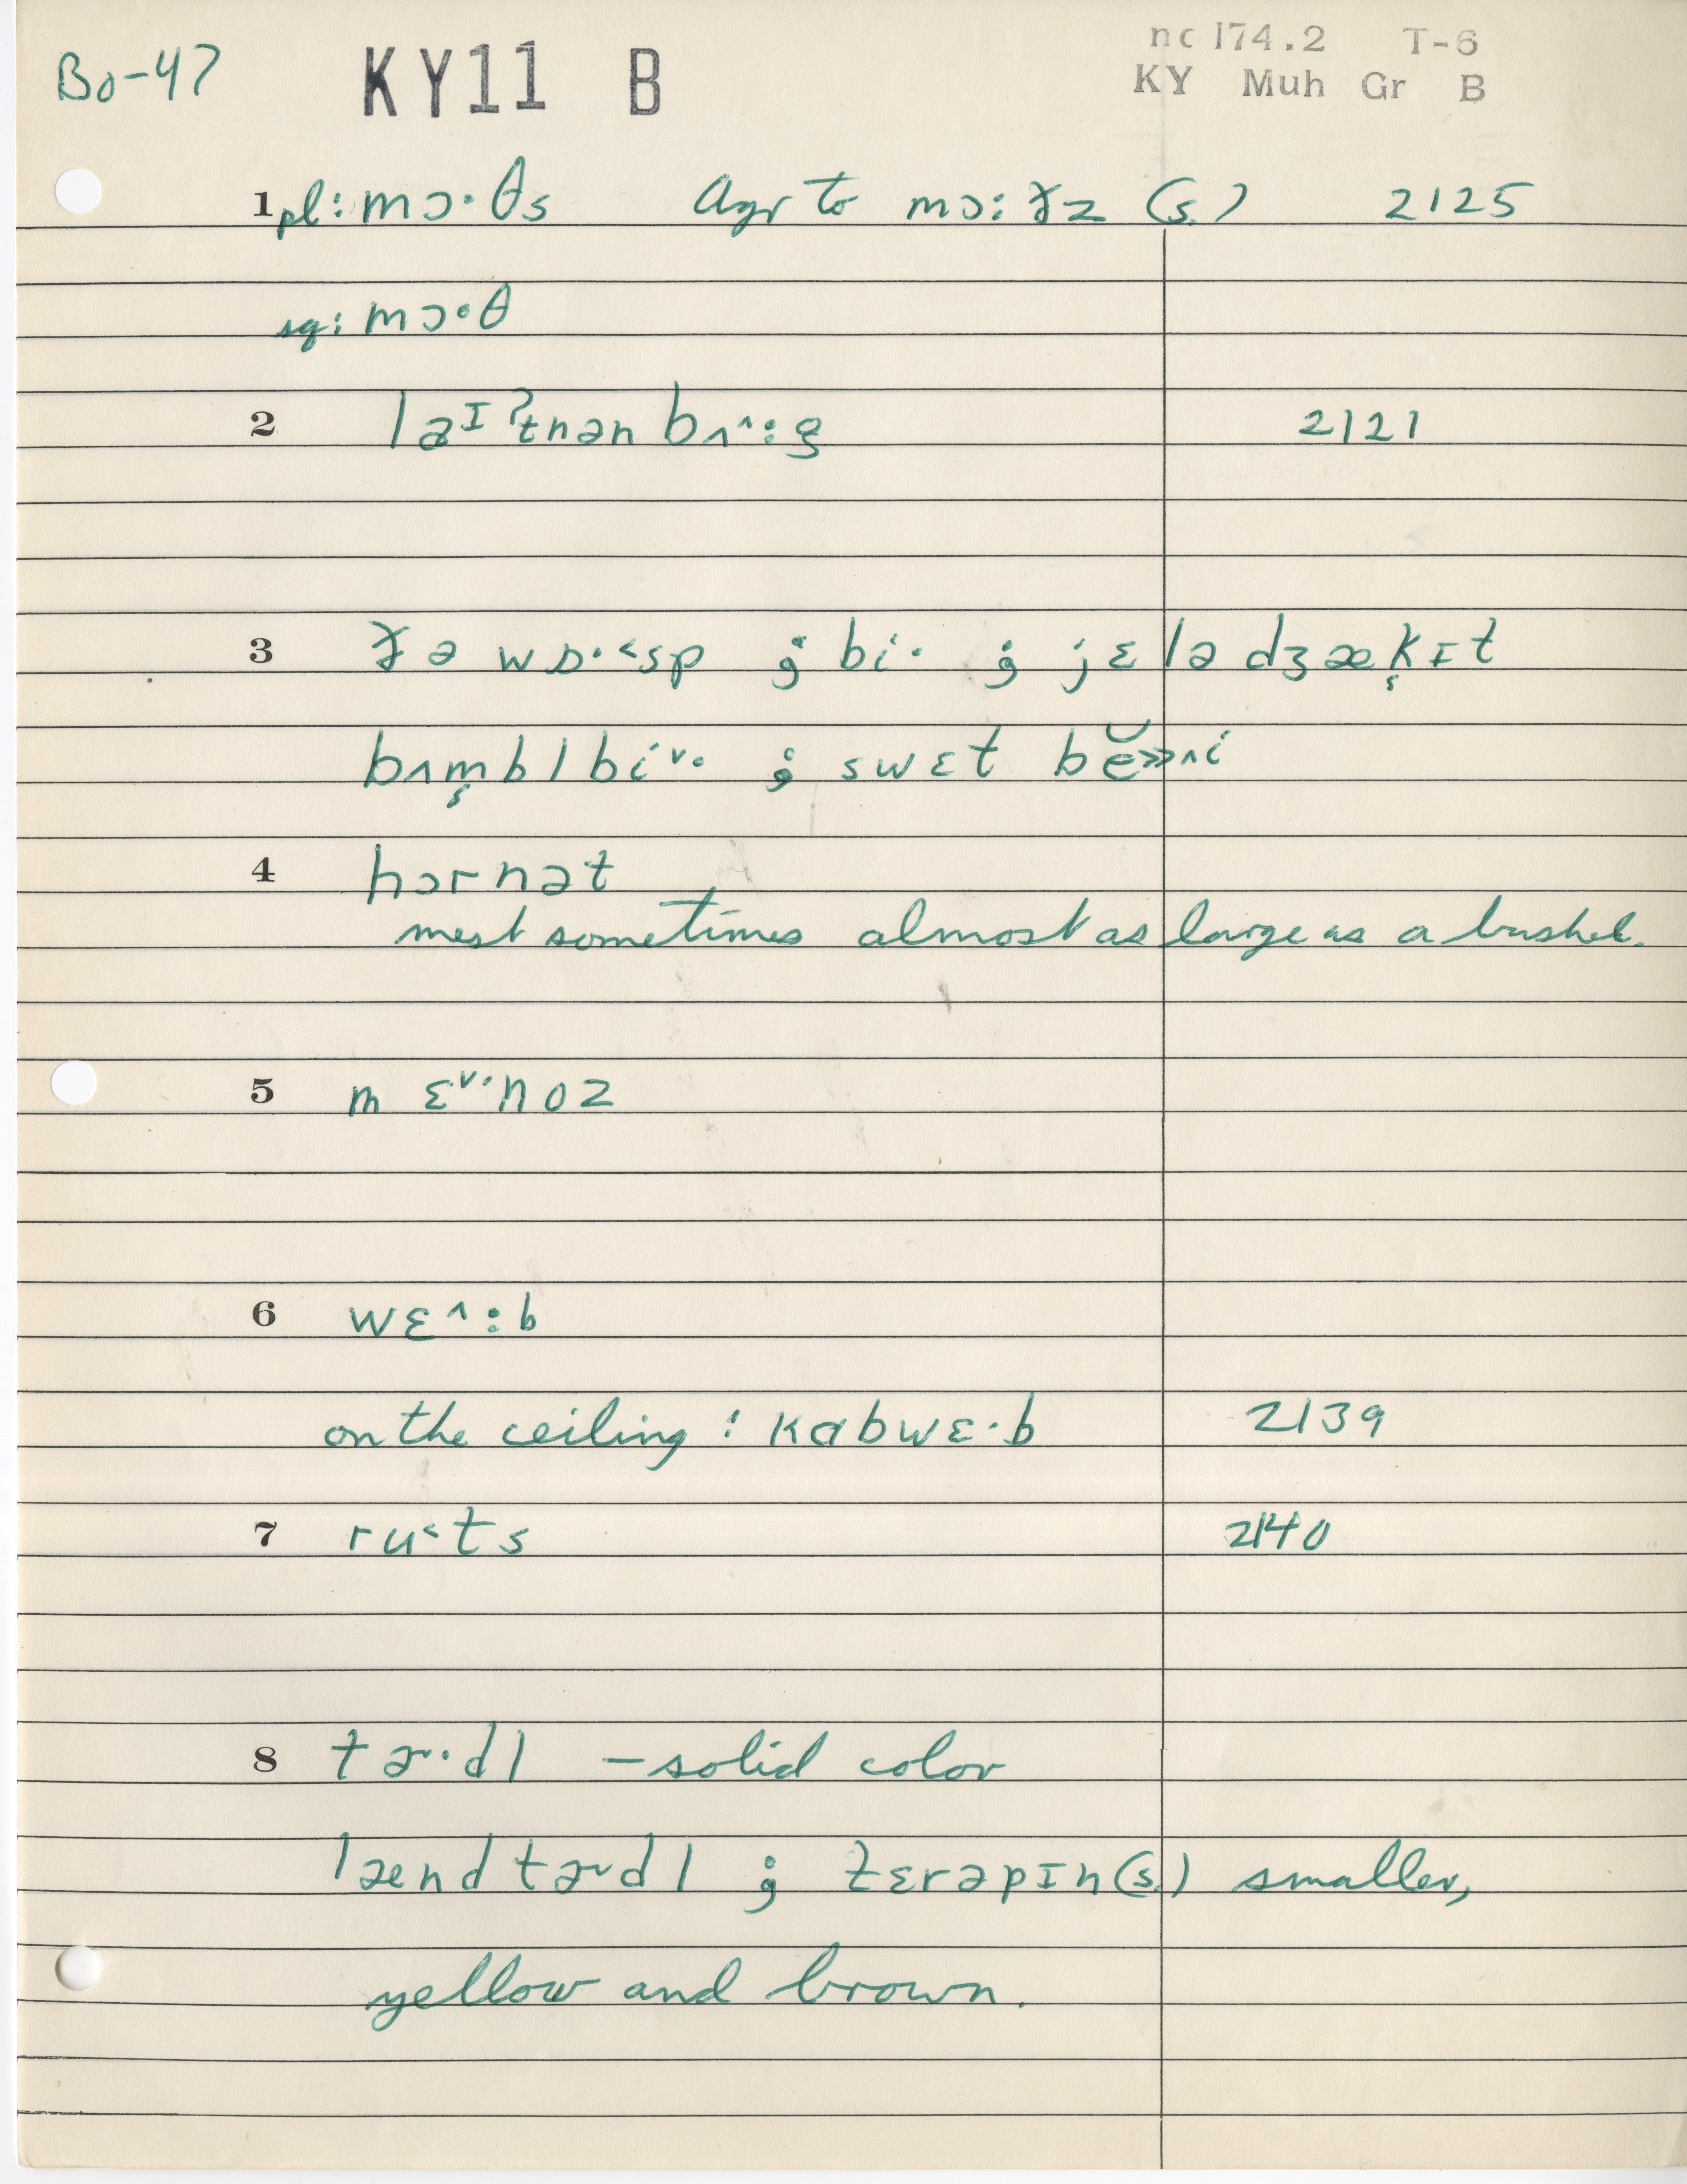 Bo-47 KY11 B nc 174.2 T-6
KY Muh Gr B
1 pl: mɔ·θs Agr to mɔ:ðz (s.) 2125
sg: mɔ·θ
2 laɪˀtnən bʌ^:g 2121
3 ðə wɒ·˂sp ; bi· ; jɛlə dʒæk̬ɪt
bʌm̬bl bi˅· ; swɛt bĕ»ʌi
4 hɔrnət
nest sometimes almost as large as a bushel.
5 m ɛ˅·noz
6 wɛ^:b
on the ceiling : kɑbwɛ·b 2139
7 ru˂ts 2140
8 tɚ·dl – solid color
lænd tɚdl ; tɛrəpɪn (s.) smaller,
yellow and brown.